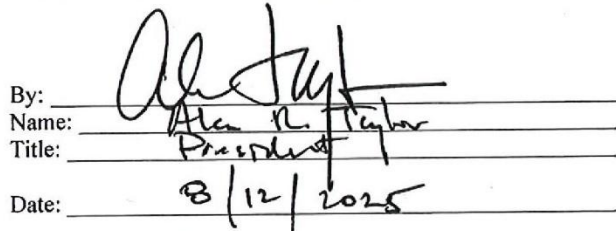 By: Alan Taylor
Name: Alan R. Taylor
Title: President
Date: 8/12/2025